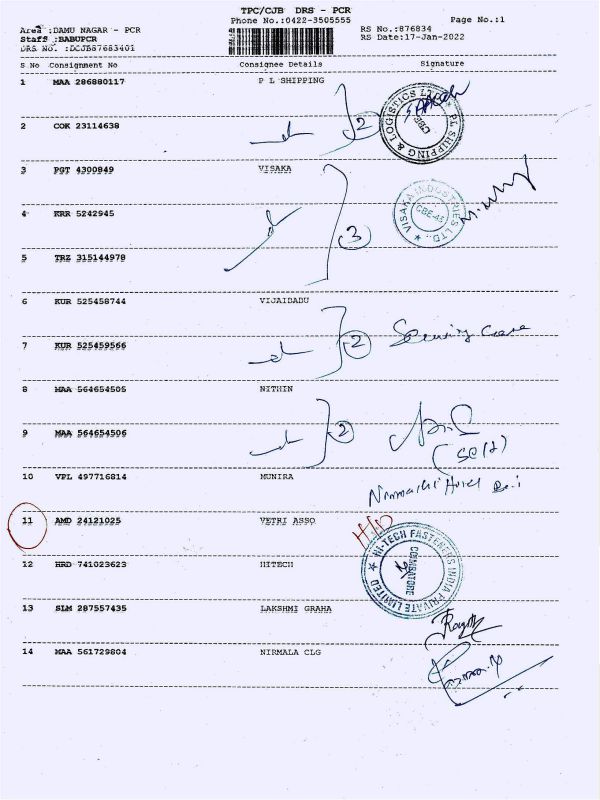 TPC/CJB DRS - PCR
Phone No.:0422-3505555
Page No.:1
Area :DAMU NAGAR - PCR
RS No.:876834
Staff :BABUPCR
RS Date:17-Jan-2022
DRS No. :DCJB87683401
S No Consignment No Consignee Details Signature
1 MAA 286880117 P L SHIPPING
PL SHIPPING & LOGISTICS
CBE
2 COK 23114638 2
3 PGT 4300849 VISAKA
VISAKA INDUSTRIES LTD.
CBE-45
4 KRR 5242945
3
5 TRZ 315144978
6 KUR 525458744 VIJAIBABU
7 KUR 525459566 2
8 MAA 564654505 NITHIN
9 MAA 564654506 2
10 VPL 497716814 MUNIRA
11 AMD 24121025 VETRI ASSO
HI-TECH FASTENERS INDIA PRIVATE LIMITED
COIMBATORE
12 HRD 741023623 HITECH
13 SLM 287557435 LAKSHMI GRAHA
14 MAA 561729804 NIRMALA CLG